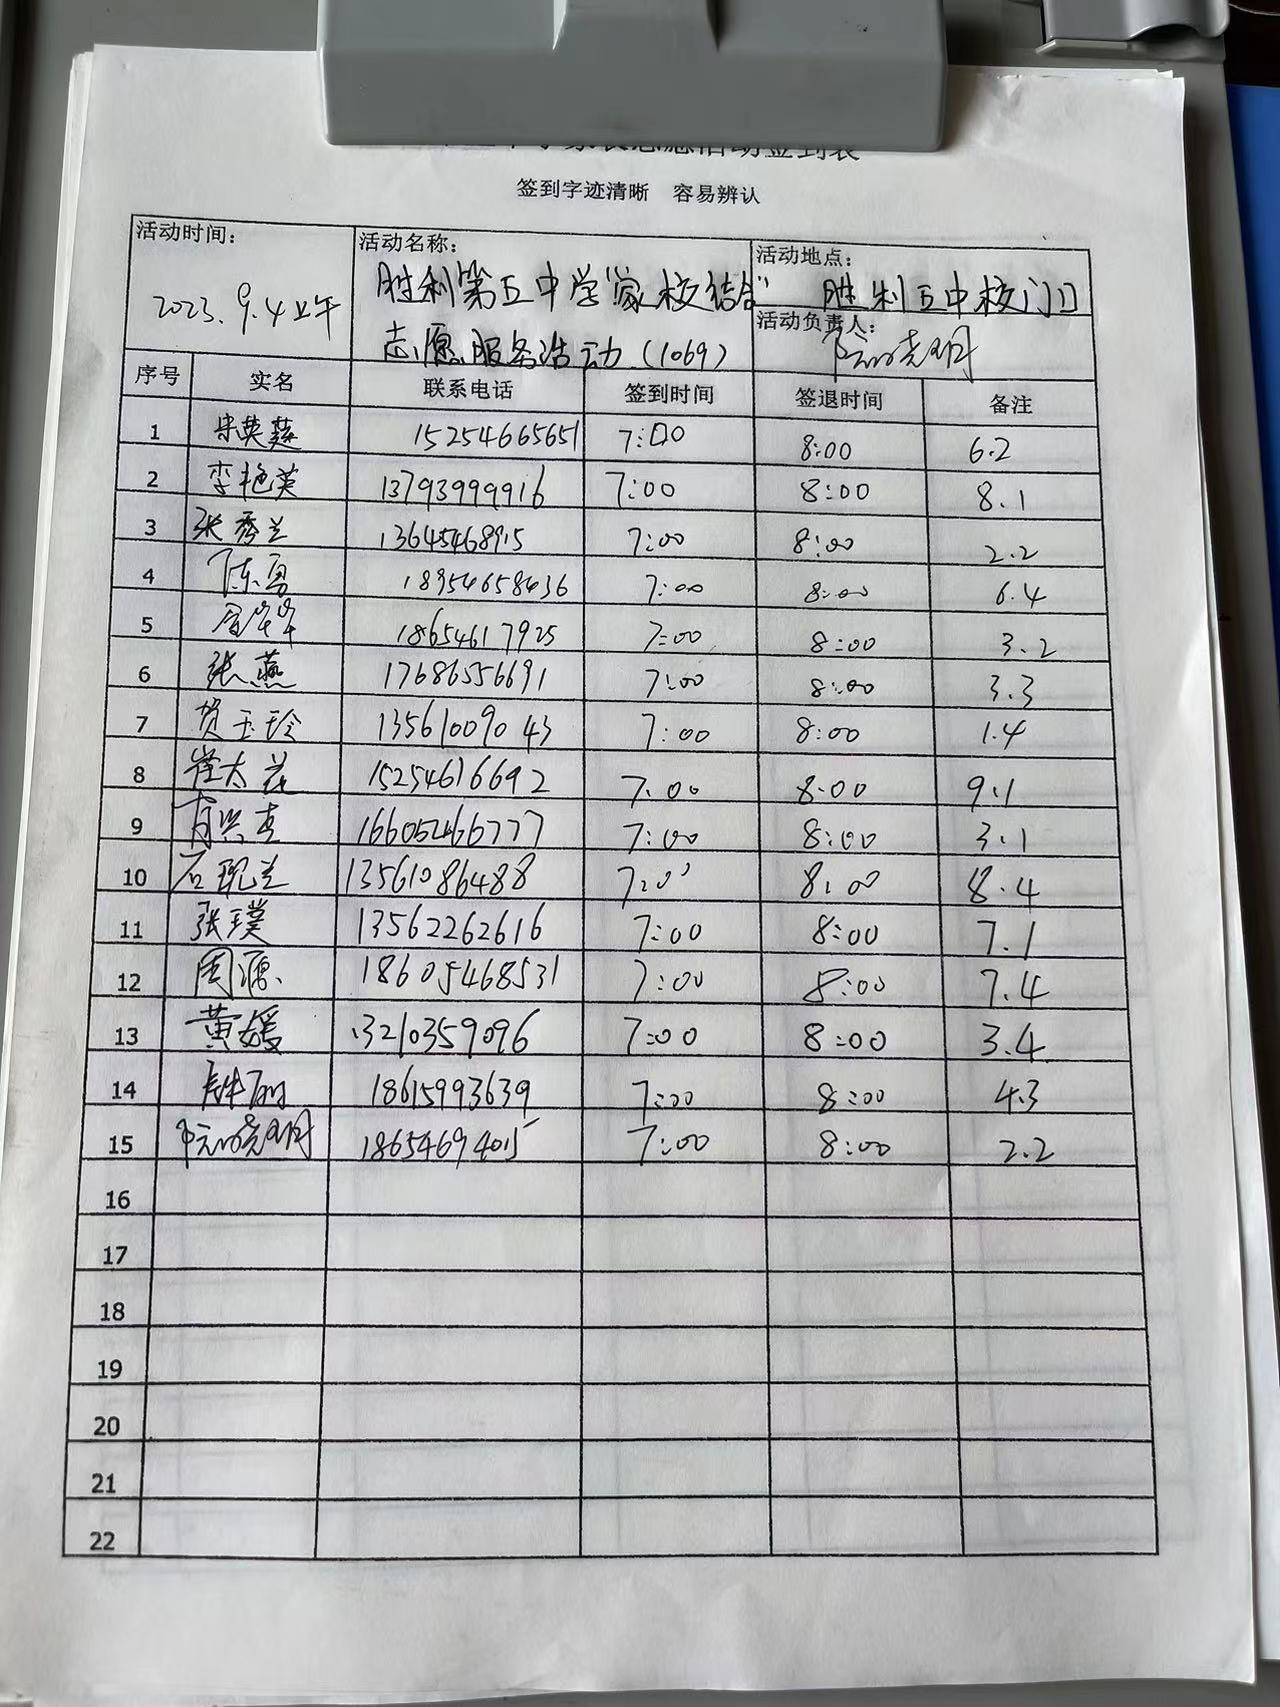 签到字迹清晰 容易辨认
活动时间: 活动名称: 活动地点:
2023.9.4上午 胜利第五中学"家校结合" 胜利五中校门口
志愿服务活动(1069) 活动负责人:
序号 实名 联系电话 签到时间 签退时间 备注
1 15254665651 7:00 8:00 6.2
2 李艳英 13793999916 7:00 8:00 8.1
3 张秀兰 13645468915 7:00 8:00 2.2
4 陈勇 18954658436 7:00 8:00 6.4
5 18654617925 7:00 8:00 3.2
6 张燕 17686556691 7:00 8:00 3.3
7 贺玉玲 13561009043 7:00 8:00 1.4
8 崔大花 15254616692 7:00 8:00 9.1
9 16605466777 7:00 8:00 3.1
10 石现兰 13561086488 7:00 8:00 8.4
11 张璞 13562262616 7:00 8:00 7.1
12 周源 18605468531 7:00 8:00 7.4
13 黄媛 13210359096 7:00 8:00 3.4
14 18615993639 7:00 8:00 4.3
15 18654694015 7:00 8:00 2.2
16
17
18
19
20
21
22